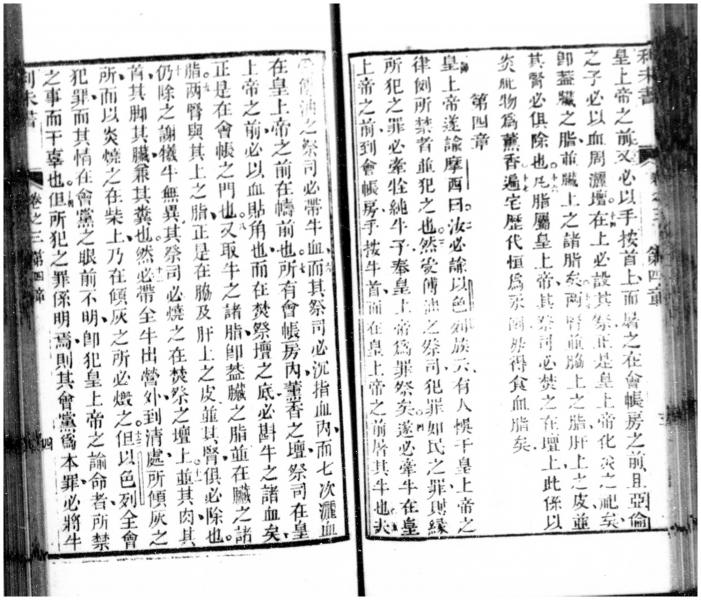 利未書 卷之三 第四章
皇上帝之前又必以手按首上而屠之在會帳房之前且亞倫
之子必以血周灑壇在上必設其祭正是皇上帝化炎之祀矣
卽蓋臟之脂並臟上之諸脂矣兩腎並脇上之脂肝上之皮並
其腎必俱除也凡脂屬皇上帝其祭司必焚之在壇上此係以
炎祀物爲薰香遍宅歷代恒爲永例得食血脂矣
第四章
皇上帝遂諭摩西曰汝必諭以色列族云有人悞干皇上帝之
律例所禁者並犯之也然受傅油之祭司犯罪如民之罪則緣
所犯之罪必牽牲純牛子奉皇上帝爲罪祭矣遂必牽牛在皇
上帝之前到會帳房手按牛首而在皇上帝之前屠其牛也夫
傅油之祭司必帶牛血而其祭司必沉指血內而七次灑血
在皇上帝之前在幬前也所有會帳房內薰香之壇祭司在皇
上帝之前必以血貼角也而在焚祭壇之底必斟牛之諸血矣
正是在會帳之門也又取牛之諸脂卽蓋臟之脂並在臟之諸
脂兩腎與其上之脂正是在脇及肝上之皮並其腎俱必除也
仍除之謝犧牛無異其祭司必燒之在焚祭之壇上並其肉其
首其脚其臟兼其糞也然必帶全牛出營外到清處所傾灰之
所而以炎燒之在柴上乃在傾灰之所必燬之但以色列全會
犯罪而其情在會黨之眼前不明卽犯皇上帝之諭命者所禁
之事而干辜也但所犯之罪係明焉則其會黨爲本罪必將牛
利未書 卷之三 第四章 四